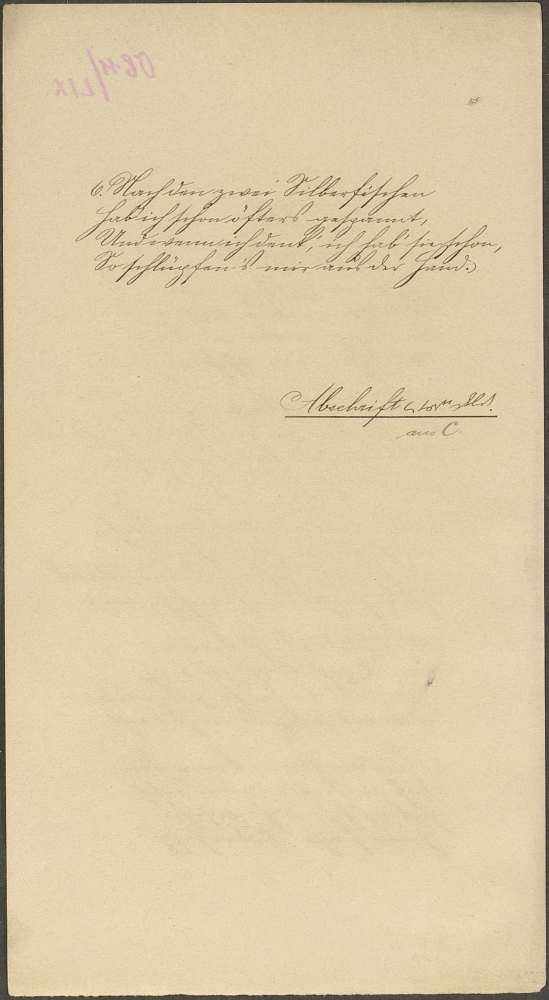 6. Nach den zwei Silberfischen
Hab ich schon öfters gespannt,
Und wenn ich denk', ich hab' sie schon,
So schlüpfen's mir aus der Hand.
Abschrift
aus C.